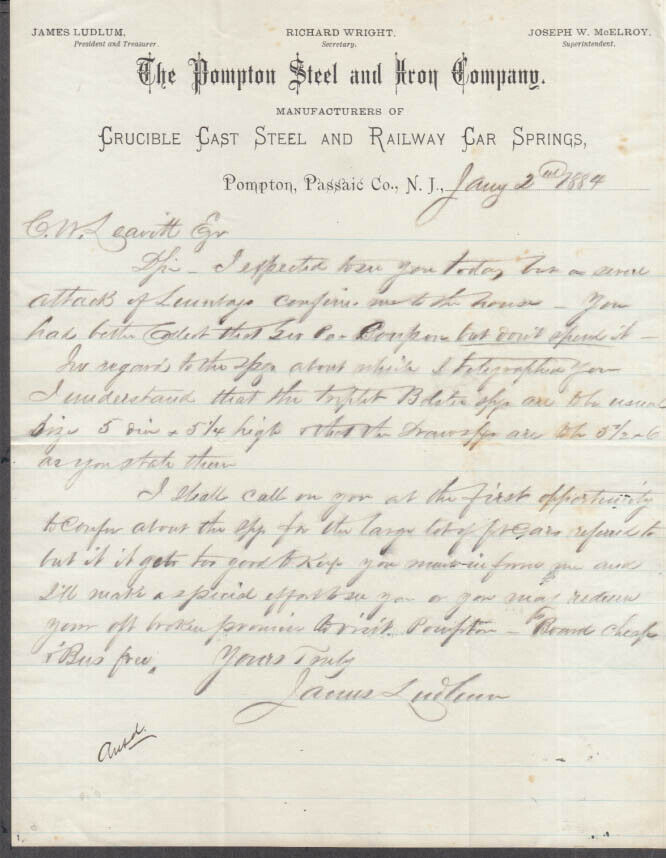 JAMES LUDLUM, RICHARD WRIGHT. JOSEPH W. McELROY,
President and Treasurer. Secretary. Superintendent.
The Pompton Steel and Iron Company.
MANUFACTURERS OF
CRUCIBLE CAST STEEL AND RAILWAY CAR SPRINGS,
Pompton, Passaic Co., N. J., Jany 2nd 1884
C. W. Leavitt Esqr
DSir - I expected to see you today but a severe
attack of Lumbago confines me to the house - You
had better Collect that Coupon but don't spend it -
In regard to the spgs about which I telegraphed you
I understand that the triplet Bolster spgs are to be usual
size 5 dia x 5 1/4 high & that the Draw spgs are to be 5 1/2 x 6
as you state them
I shall call on you at the first opportunity
to Confer about the spgs for the large lot of frt Cars referred to
but if it gets too good to keep you may inform me and
I'll make a special effort to see you or you may redeem
your oft broken promise to visit Pompton - Board cheap
& 'Bus free. Yours Truly
James Ludlum
Ansd.